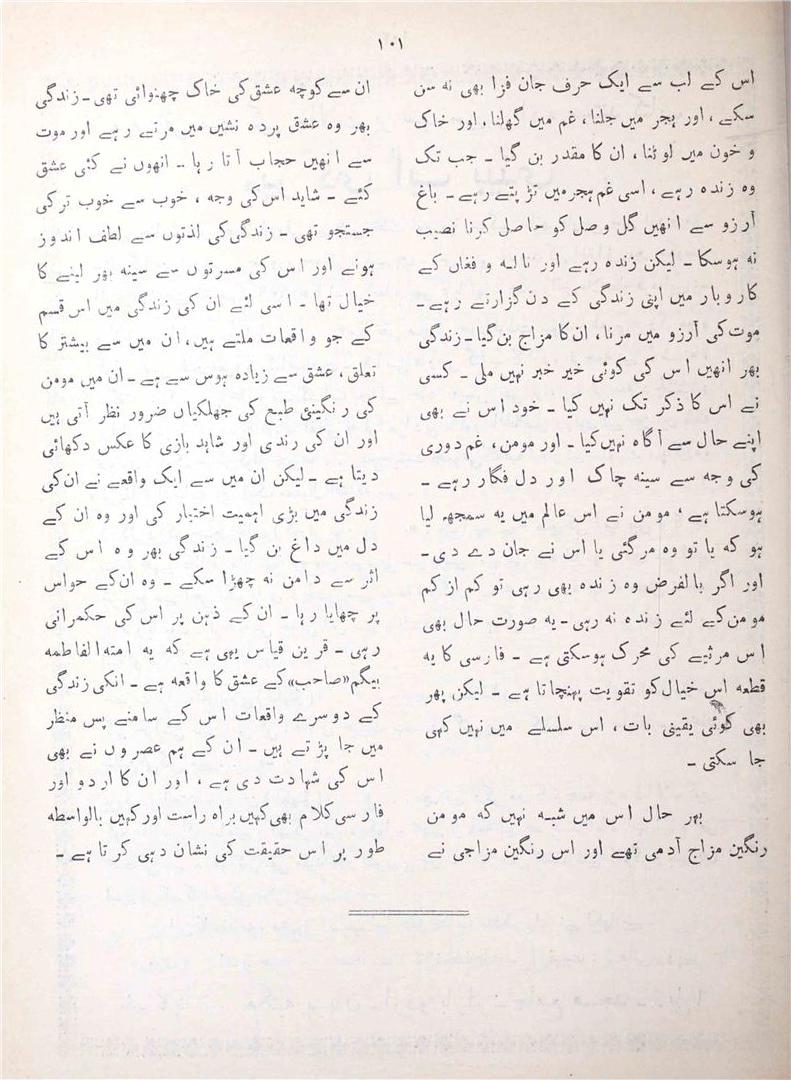 ۱۰۱
اس کے لب سے ایک حرف جان فزا بھی نہ سن
سکے ، اور ہجر میں جلنا، غم میں گھلنا، اور خاک
و خون میں لوٹنا ، ان کا مقدر بن گیا ۔ جب تک
وہ زندہ رہے ، اسی غم ہجر میں تڑپتے رہے ۔ باغ
آرزو سے انھیں گل وصل کو حاصل کرنا نصیب
نہ ہوسکا ۔ لیکن زندہ رہے اور نالہ و فغاں کے
کاروبار میں اپنی زندگی کے دن گزارتے رہے ۔
موت کی آرزو میں مرنا ، ان کا مزاج بن گیا ۔ زندگی
بھر انھیں اس کی کوئی خیر خبر نہیں ملی ۔ کسی
نے اس کا ذکر تک نہیں کیا ۔ خود اس نے بھی
اپنے حال سے آگاہ نہیں کیا ۔ اور مومن ، غم دوری
کی وجہ سے سینہ چاک اور دل فگار رہے ۔
ہوسکتا ہے ، مومن نے اس عالم میں یہ سمجھ لیا
ہو کہ یا تو وہ مرگئی یا اس نے جان دے دی ۔
اور اگر بالفرض وہ زندہ بھی رہی تو کم از کم
مومن کے لئے زندہ نہ رہی ۔ یہ صورت حال بھی
اس مرثیے کی محرک ہوسکتی ہے ۔ فارسی کا یہ
قطعہ اس خیال کو تقویت پہنچاتا ہے ۔ لیکن پھر
بھی کوئی یقینی بات ، اس سلسلے میں نہیں کہی
جا سکتی ۔
بہر حال اس میں شبہ نہیں کہ مومن
رنگین مزاج آدمی تھے اور اس رنگین مزاجی نے
ان سے کوچہ عشق کی خاک چھنوائی تھی ۔ زندگی
بھر وہ عشق پردہ نشیں میں مرتے رہے اور موت
سے انھیں حجاب آتا رہا ۔ انھوں نے کئی عشق
کئے ۔ شاید اس کی وجہ ، خوب سے خوب تر کی
جستجو تھی ۔ زندگی کی لذتوں سے لطف اندوز
ہونے اور اس کی مسرتوں سے سینہ بھر لینے کا
خیال تھا ۔ اسی لئے ان کی زندگی میں اس قسم
کے جو واقعات ملتے ہیں ، ان میں سے بیشتر کا
تعلق ، عشق سے زیادہ ہوس سے ہے ۔ ان میں مومن
کی رنگینئ طبع کی جھلکیاں ضرور نظر آتی ہیں
اور ان کی رندی اور شاہد بازی کا عکس دکھائی
دیتا ہے ۔ لیکن ان میں سے ایک واقعے نے ان کی
زندگی میں بڑی اہمیت اختیار کی اور وہ ان کے
دل میں داغ بن گیا ۔ زندگی بھر وہ اس کے
اثر سے دامن نہ چھڑا سکے ۔ وہ ان کے حواس
پر چھایا رہا ۔ ان کے ذہن پر اس کی حکمرانی
رہی ۔ قرین قیاس یہی ہے کہ یہ امتہ الفاطمہ
بیگم ”صاحب“ کے عشق کا واقعہ ہے ۔ انکی زندگی
کے دوسرے واقعات اس کے سامنے پس منظر
میں جا پڑتے ہیں ۔ ان کے ہم عصروں نے بھی
اس کی شہادت دی ہے ، اور ان کا اردو اور
فارسی کلام بھی کہیں براہ راست اور کہیں بالواسطہ
طور پر اس حقیقت کی نشان دہی کرتا ہے ۔